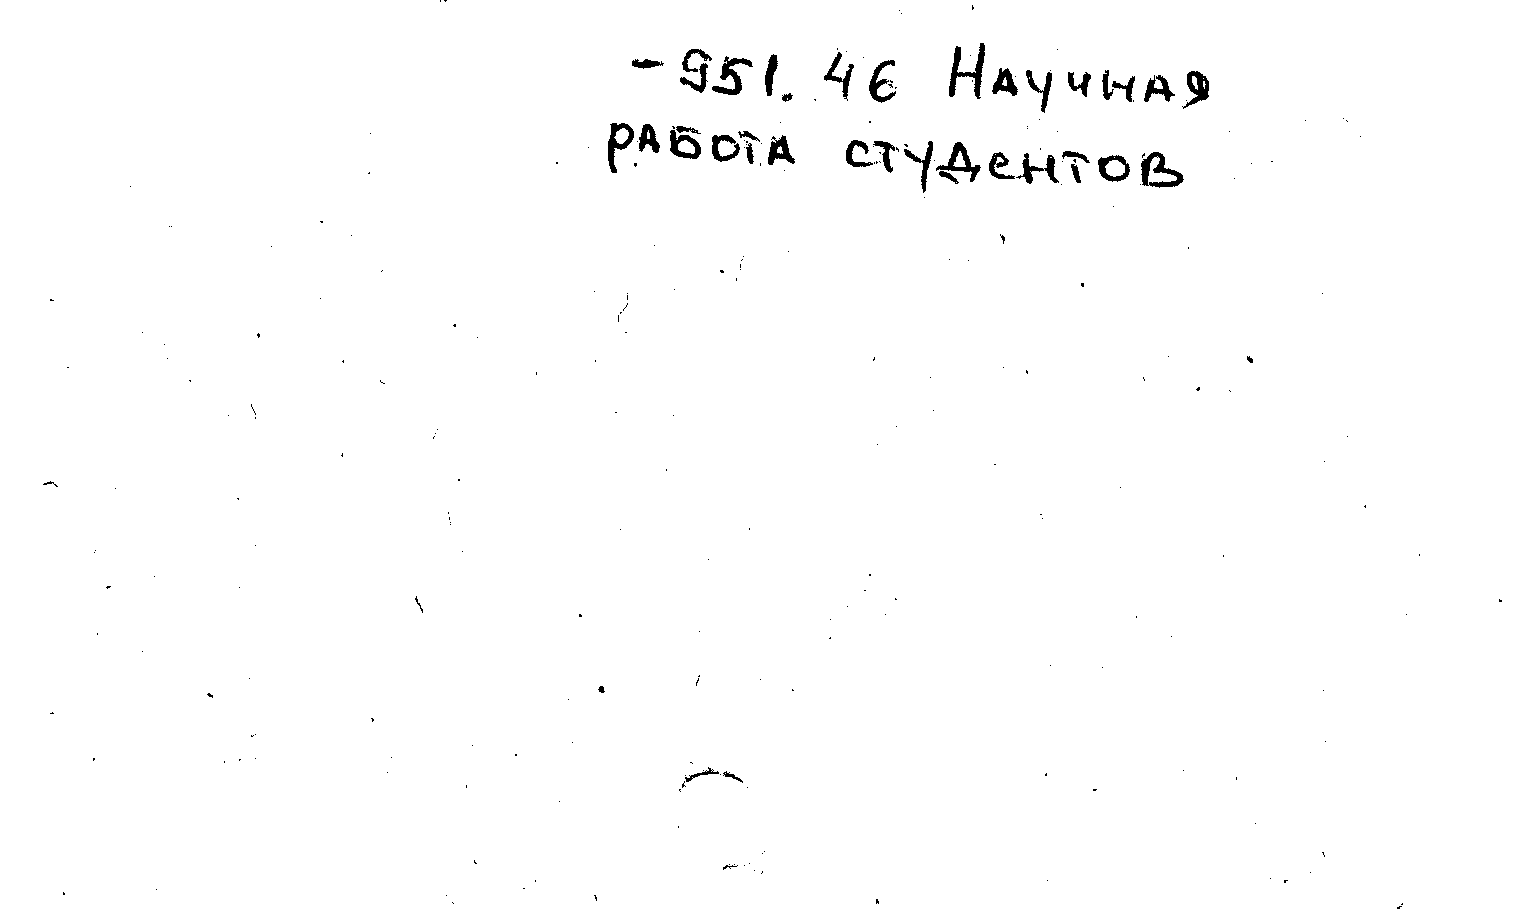 - 951.46 Научная
работа студентов